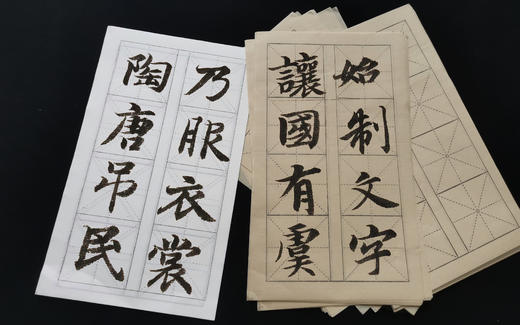 始制文字
讓國有虞
乃服衣裳
陶唐吊民